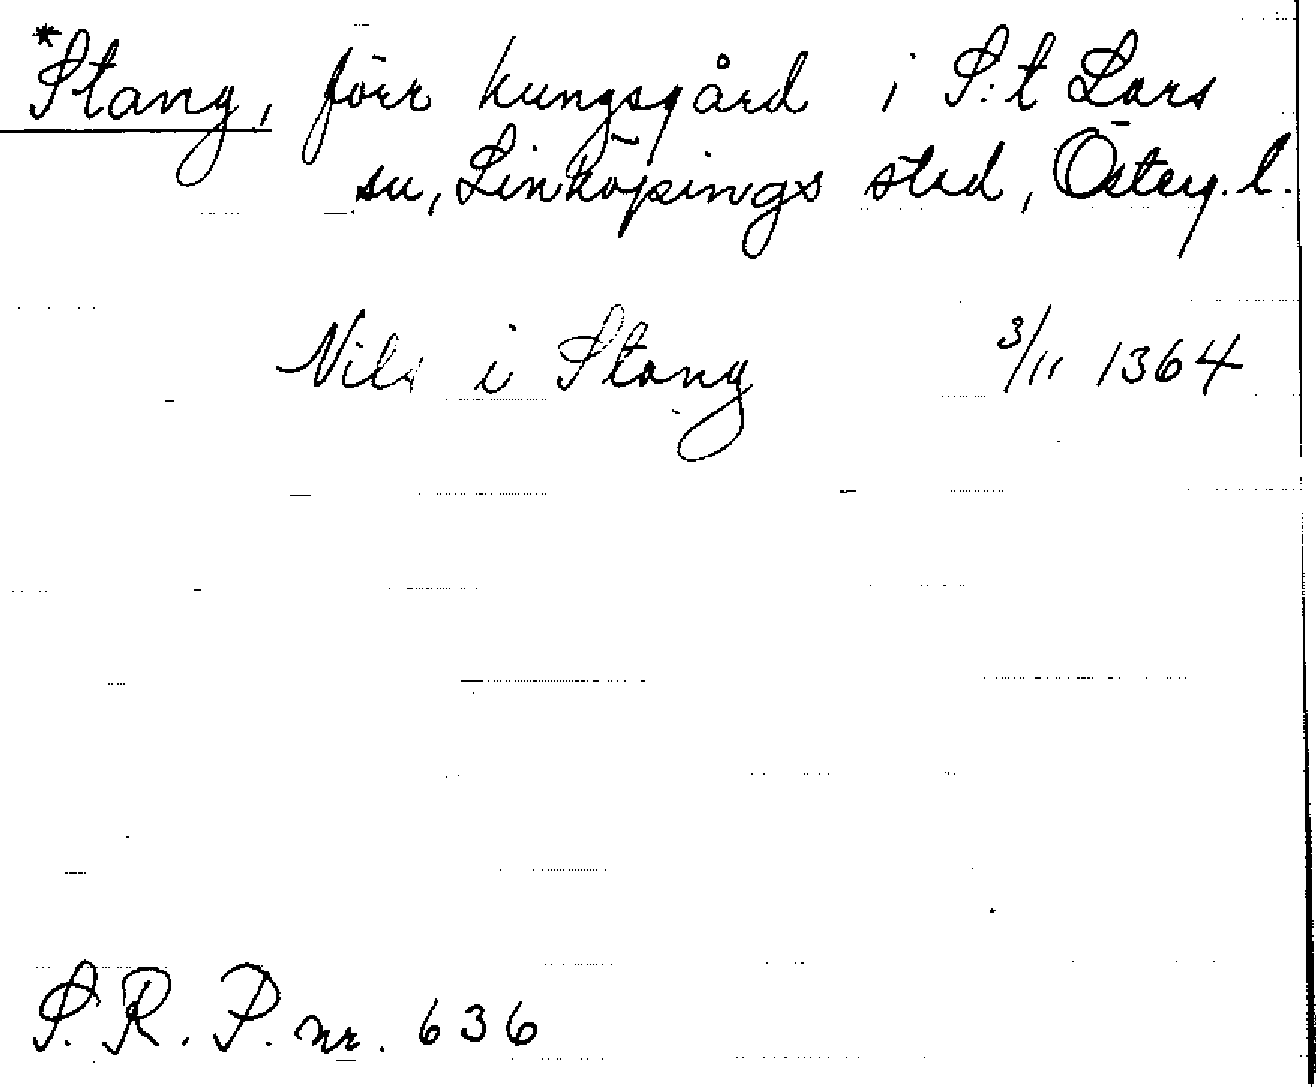 *Stang, förr kungsgård i S:t Lars
sn, Linköpings stad, Österg. l.
Nils i Stang 3/11 1364
S. R. P. nr. 636